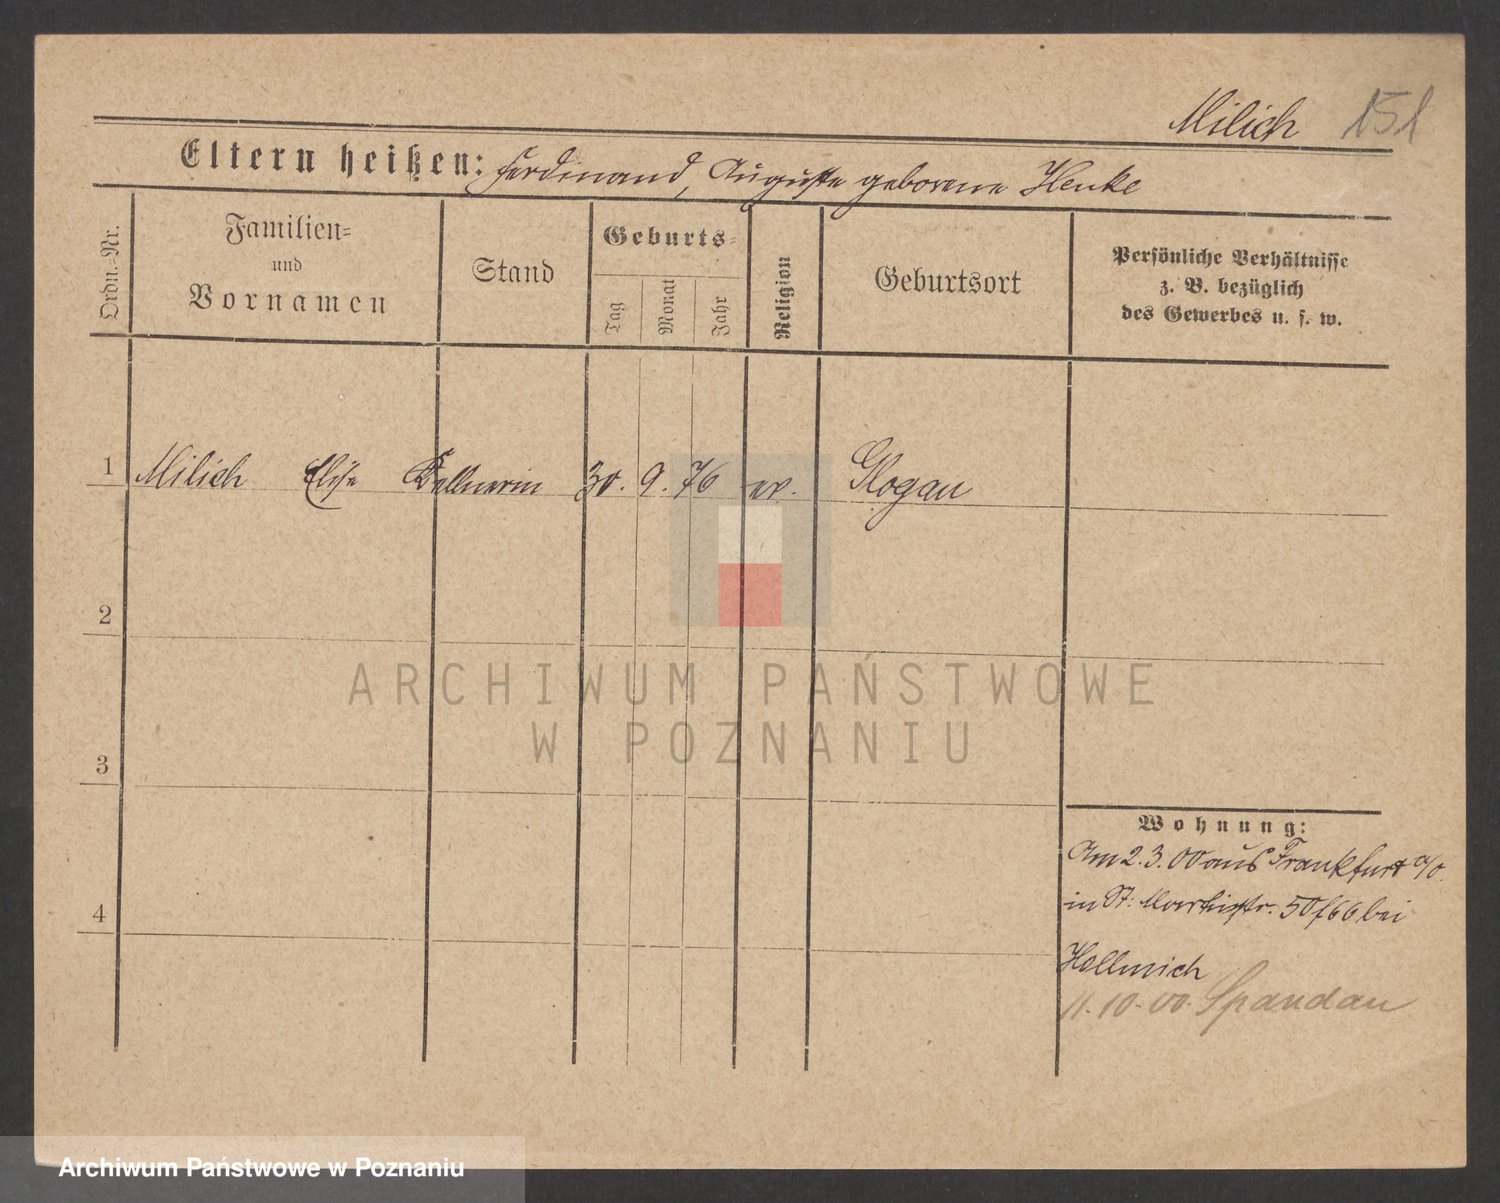 Milich 151
Eltern heißen: Ferdinand, Auguste geborene Henke
Ordn.-Nr.
Familien-
und
Vornamen
Stand
Geburts-
Tag
Monat
Jahr
Religion
Geburtsort
Persönliche Verhältnisse
z. B. bezüglich
des Gewerbes u. s. w.
1 Milich Elise Kellnerin 30. 9. 76 ev. Glogau
2
3
4
ARCHIWUM PAŃSTWOWE
W POZNANIU
Wohnung:
Am 2.3.00 aus Frankfurt a/O.
in St: Martinstr. 50 bei
Hellmich
11.10.00. Spandau
Archiwum Państwowe w Poznaniu